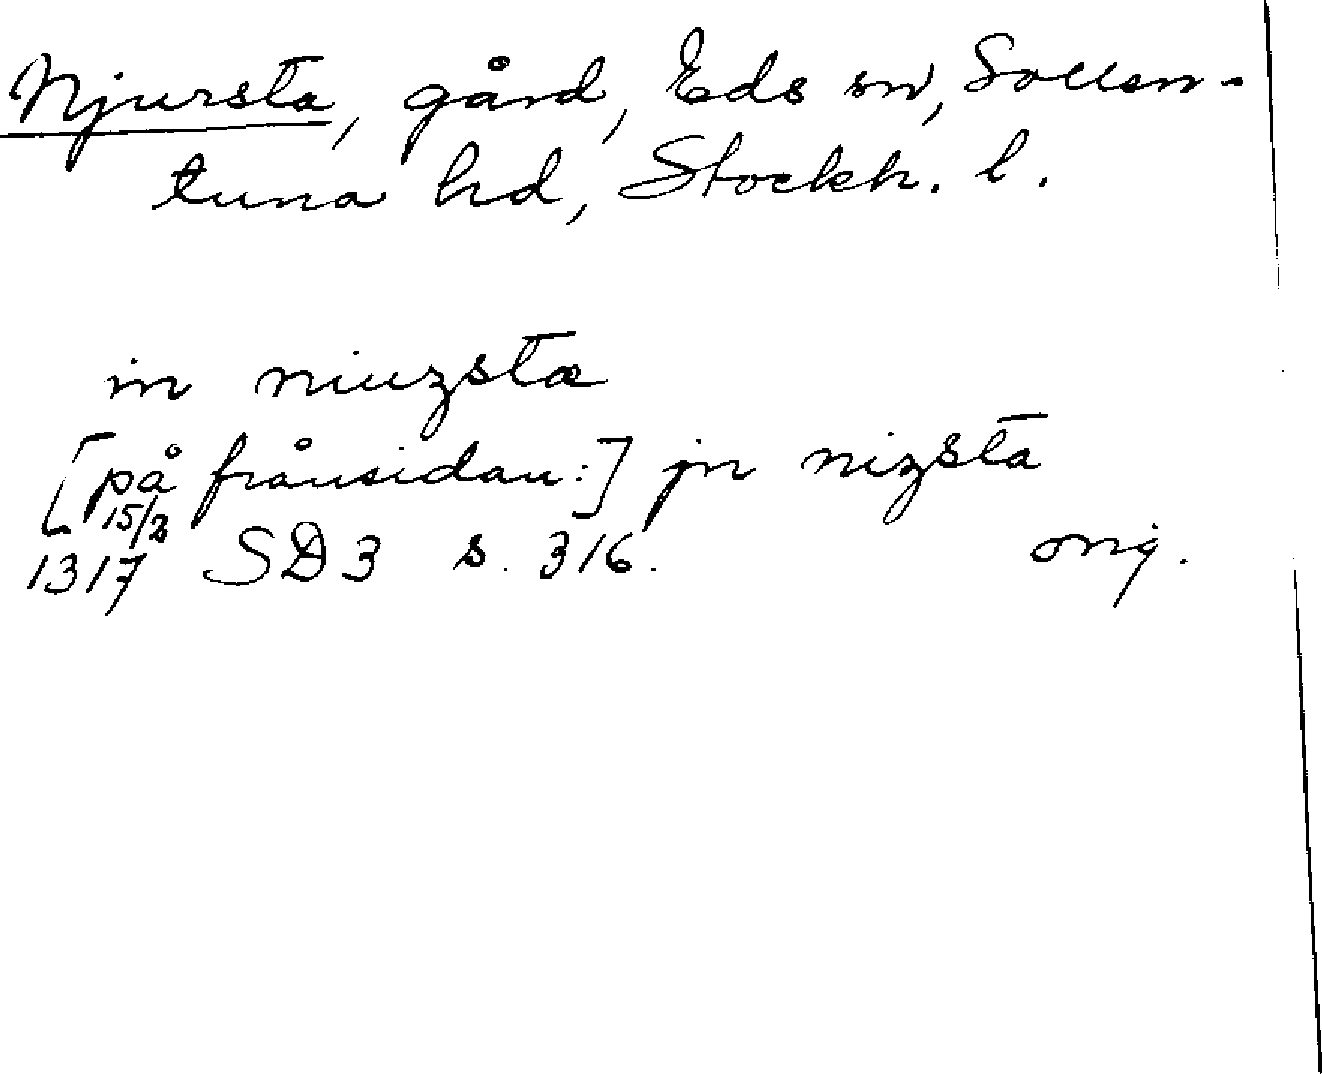 Njursta, gård, Eds sn, Sollen-
tuna hd, Stockh. l.
in niuzstæ
[på frånsidan:] jn nizsta
15/2
1317 SD3 s. 316. orig.